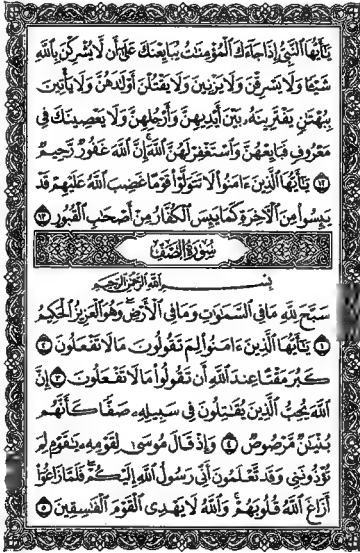 يَٰٓأَيُّهَا ٱلنَّبِىُّ إِذَا جَآءَكَ ٱلْمُؤْمِنَٰتُ يُبَايِعْنَكَ عَلَىٰٓ أَن لَّا يُشْرِكْنَ بِٱللَّهِ
شَيْـًٔا وَلَا يَسْرِقْنَ وَلَا يَزْنِينَ وَلَا يَقْتُلْنَ أَوْلَٰدَهُنَّ وَلَا يَأْتِينَ
بِبُهْتَٰنٍ يَفْتَرِينَهُۥ بَيْنَ أَيْدِيهِنَّ وَأَرْجُلِهِنَّ وَلَا يَعْصِينَكَ فِى
مَعْرُوفٍ فَبَايِعْهُنَّ وَٱسْتَغْفِرْ لَهُنَّ ٱللَّهَ إِنَّ ٱللَّهَ غَفُورٌ رَّحِيمٌ
١٢ يَٰٓأَيُّهَا ٱلَّذِينَ ءَامَنُوا۟ لَا تَتَوَلَّوْا۟ قَوْمًا غَضِبَ ٱللَّهُ عَلَيْهِمْ قَدْ
يَئِسُوا۟ مِنَ ٱلْءَاخِرَةِ كَمَا يَئِسَ ٱلْكُفَّارُ مِنْ أَصْحَٰبِ ٱلْقُبُورِ ١٣
سُورَةُ الصَّفِّ
بِسْمِ ٱللَّهِ ٱلرَّحْمَٰنِ ٱلرَّحِيمِ
سَبَّحَ لِلَّهِ مَا فِى ٱلسَّمَٰوَٰتِ وَمَا فِى ٱلْأَرْضِ وَهُوَ ٱلْعَزِيزُ ٱلْحَكِيمُ
١ يَٰٓأَيُّهَا ٱلَّذِينَ ءَامَنُوا۟ لِمَ تَقُولُونَ مَا لَا تَفْعَلُونَ ٢
كَبُرَ مَقْتًا عِندَ ٱللَّهِ أَن تَقُولُوا۟ مَا لَا تَفْعَلُونَ ٣ إِنَّ
ٱللَّهَ يُحِبُّ ٱلَّذِينَ يُقَٰتِلُونَ فِى سَبِيلِهِۦ صَفًّا كَأَنَّهُم
بُنْيَٰنٌ مَّرْصُوصٌ ٤ وَإِذْ قَالَ مُوسَىٰ لِقَوْمِهِۦ يَٰقَوْمِ لِمَ
تُؤْذُونَنِى وَقَد تَّعْلَمُونَ أَنِّى رَسُولُ ٱللَّهِ إِلَيْكُمْ فَلَمَّا زَاغُوٓا۟
أَزَاغَ ٱللَّهُ قُلُوبَهُمْ وَٱللَّهُ لَا يَهْدِى ٱلْقَوْمَ ٱلْفَٰسِقِينَ ٥